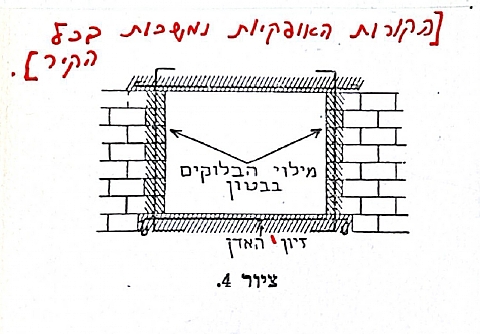 [הקורות האופקיות נמשכות בכל
הקיר].
מילוי הבלוקים
בבטון
זיון האדן
ציור 4.